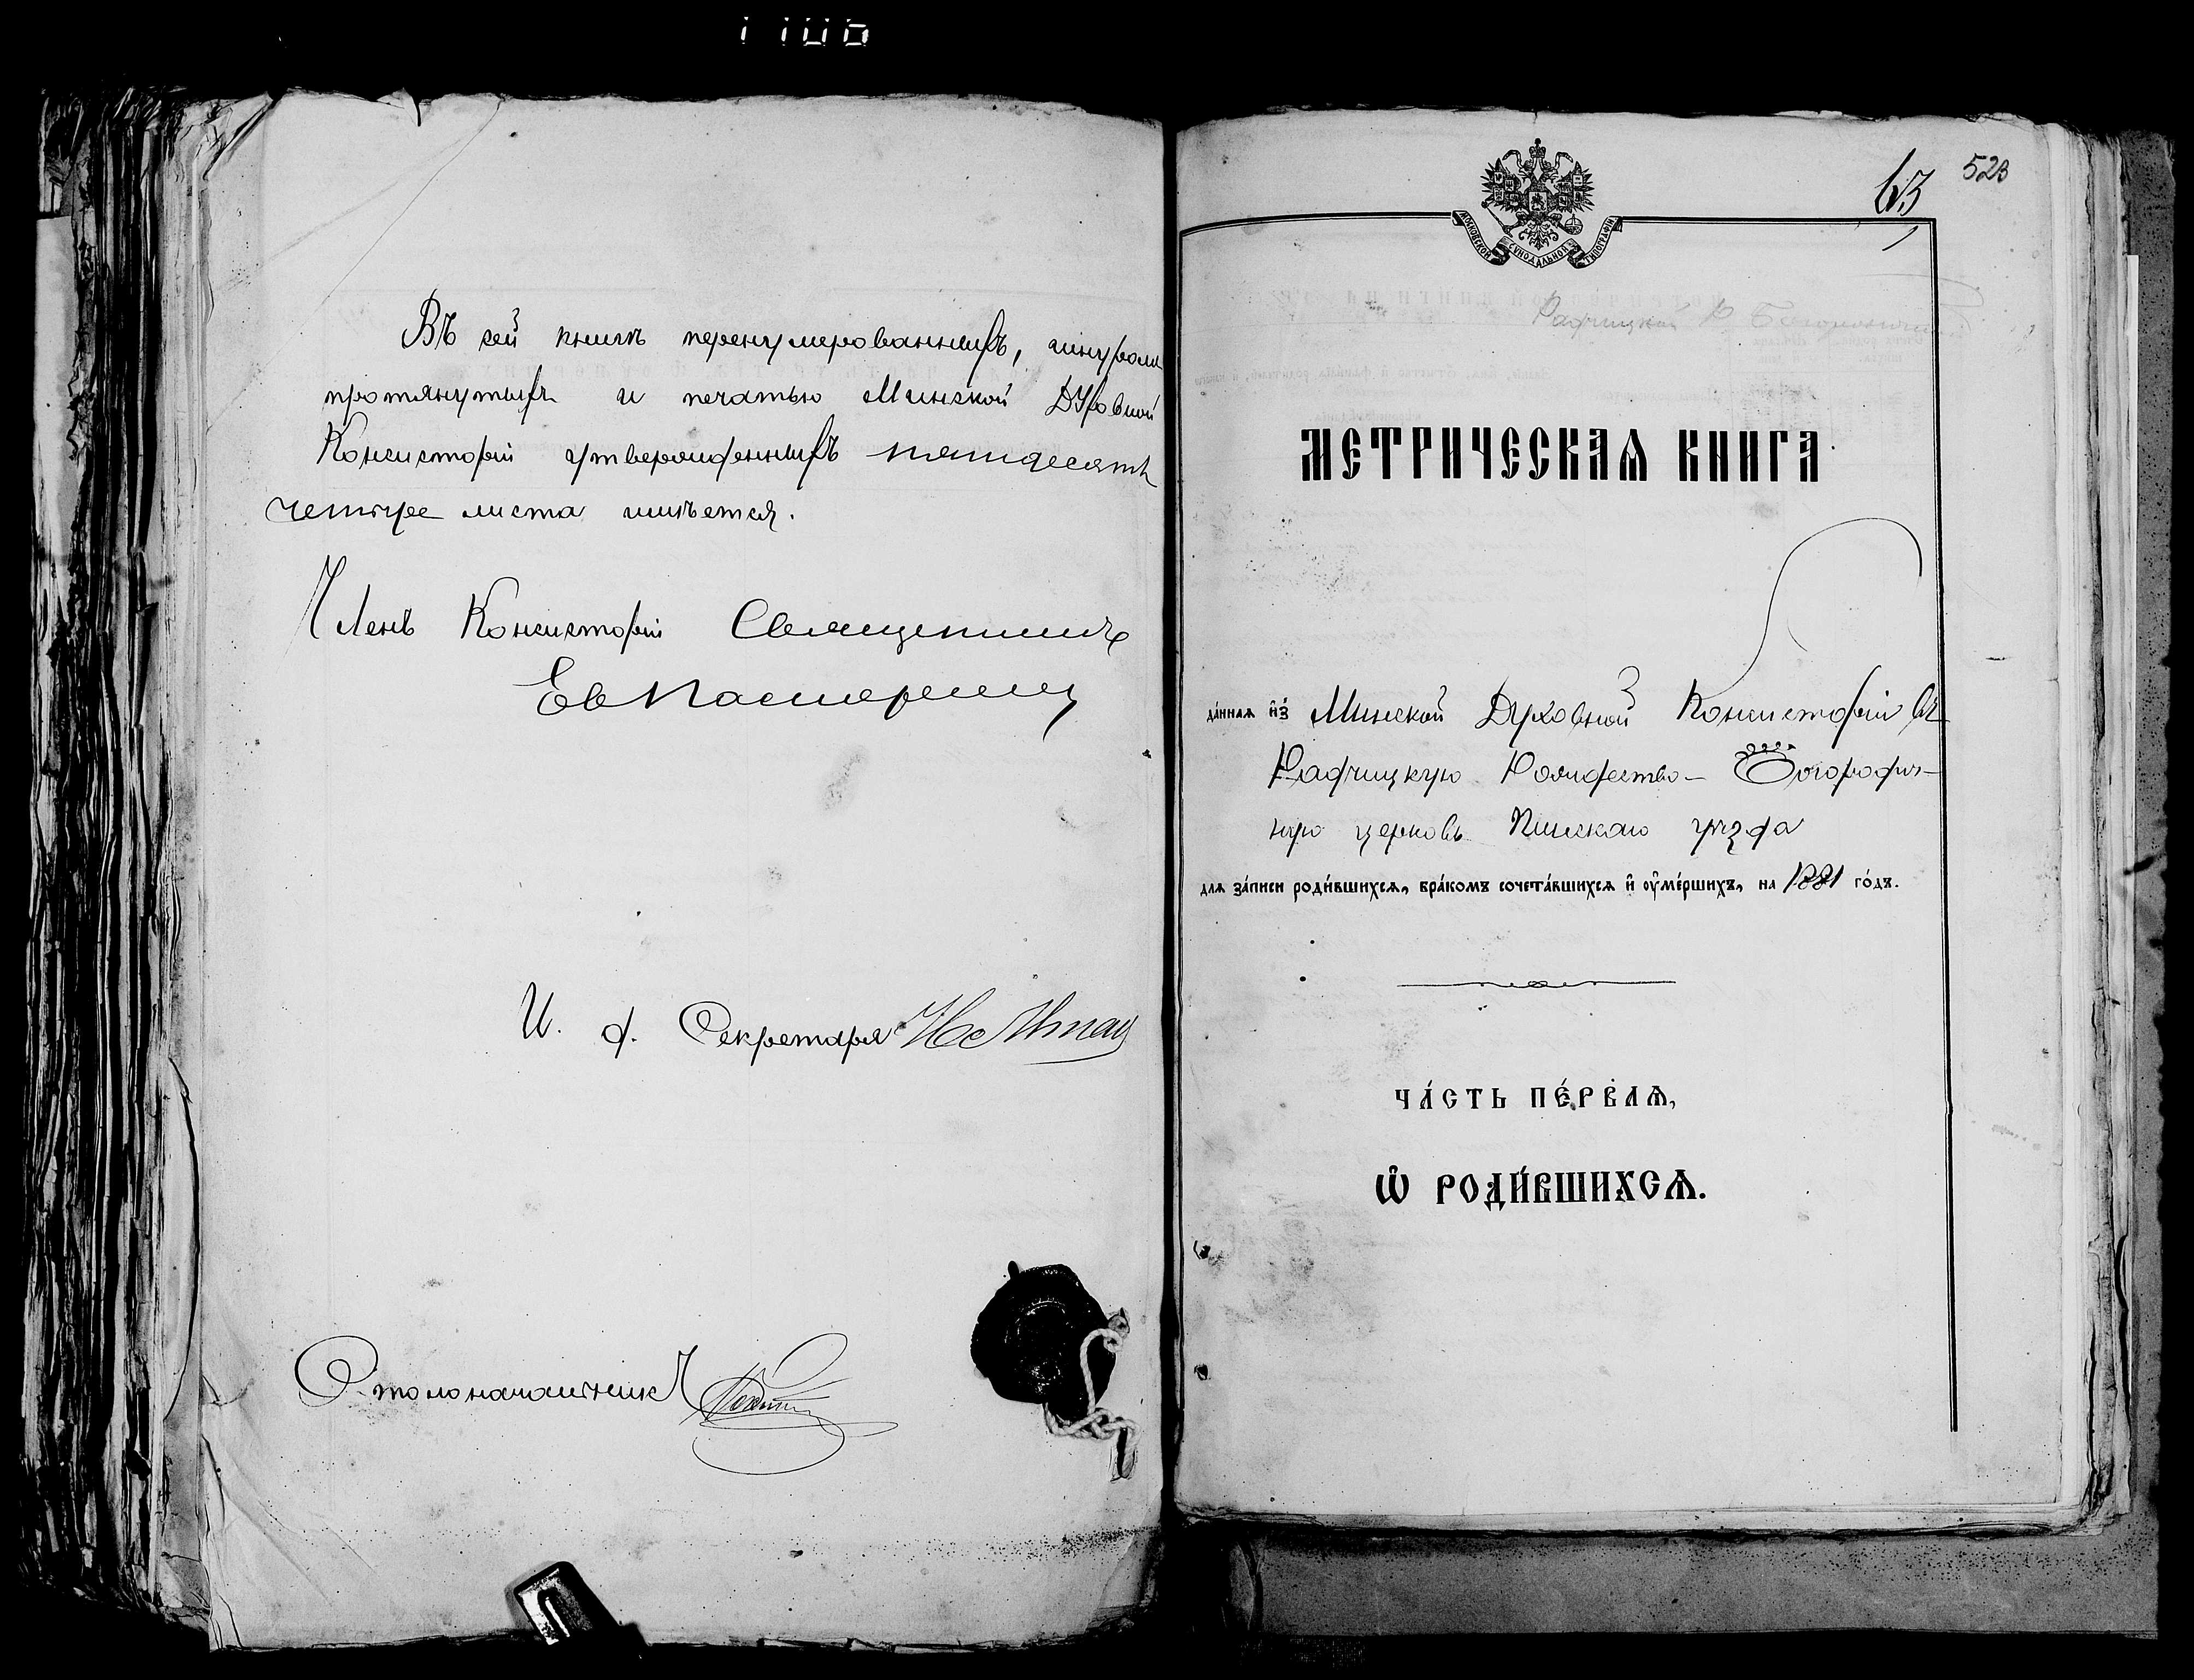 Въ сей книгѣ перенумерованныхъ, шнуромъ
протянутыхъ и печатью Минской Духовной
Консисторіи утвержденныхъ пятьдесятъ
четыре листа имѣется.
Членъ Консисторіи Священникъ
И. д. Секретаря
Столоначальникъ
63 523
МОСКОВСКОЙ СѴНОДАЛЬНОЙ ТИПОГРАФІИ
МЕТРИЧЕСКАѦ КНИГА
да́ннаѧ и҆з̾ Минской Духовной Консисторіи въ
Радчицкую Рождество-Богородич-
ную церковь Пинскаго уѣзда
длѧ за́писи роди́вшихсѧ, бра́комъ сочета́вшихсѧ и҆ ᲂу҆ме́ршихъ, на 1881 го́дъ.
ЧА́СТЬ ПЕ́РВАѦ,
Ѽ РОДИ́ВШИХСѦ.